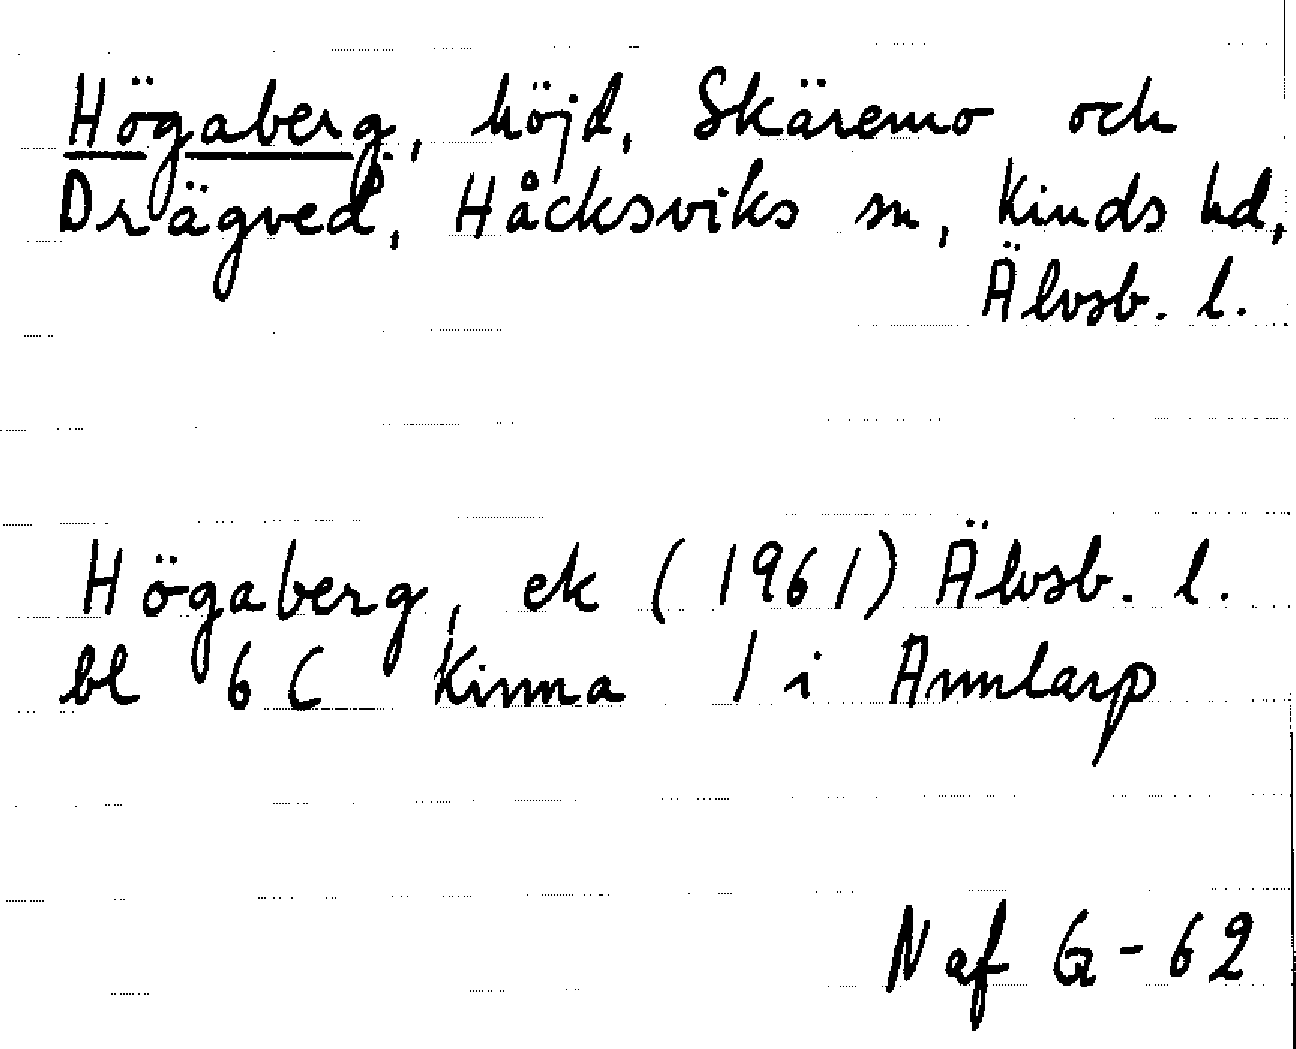 Högaberg, höjd, Skäremo och
Drägved, Håcksviks sn, Kinds hd,
Älvsb. l.
Högaberg, ek (1961) Älvsb. l.
bl 6 C Kinna 1 i Annlarp
N af G-62